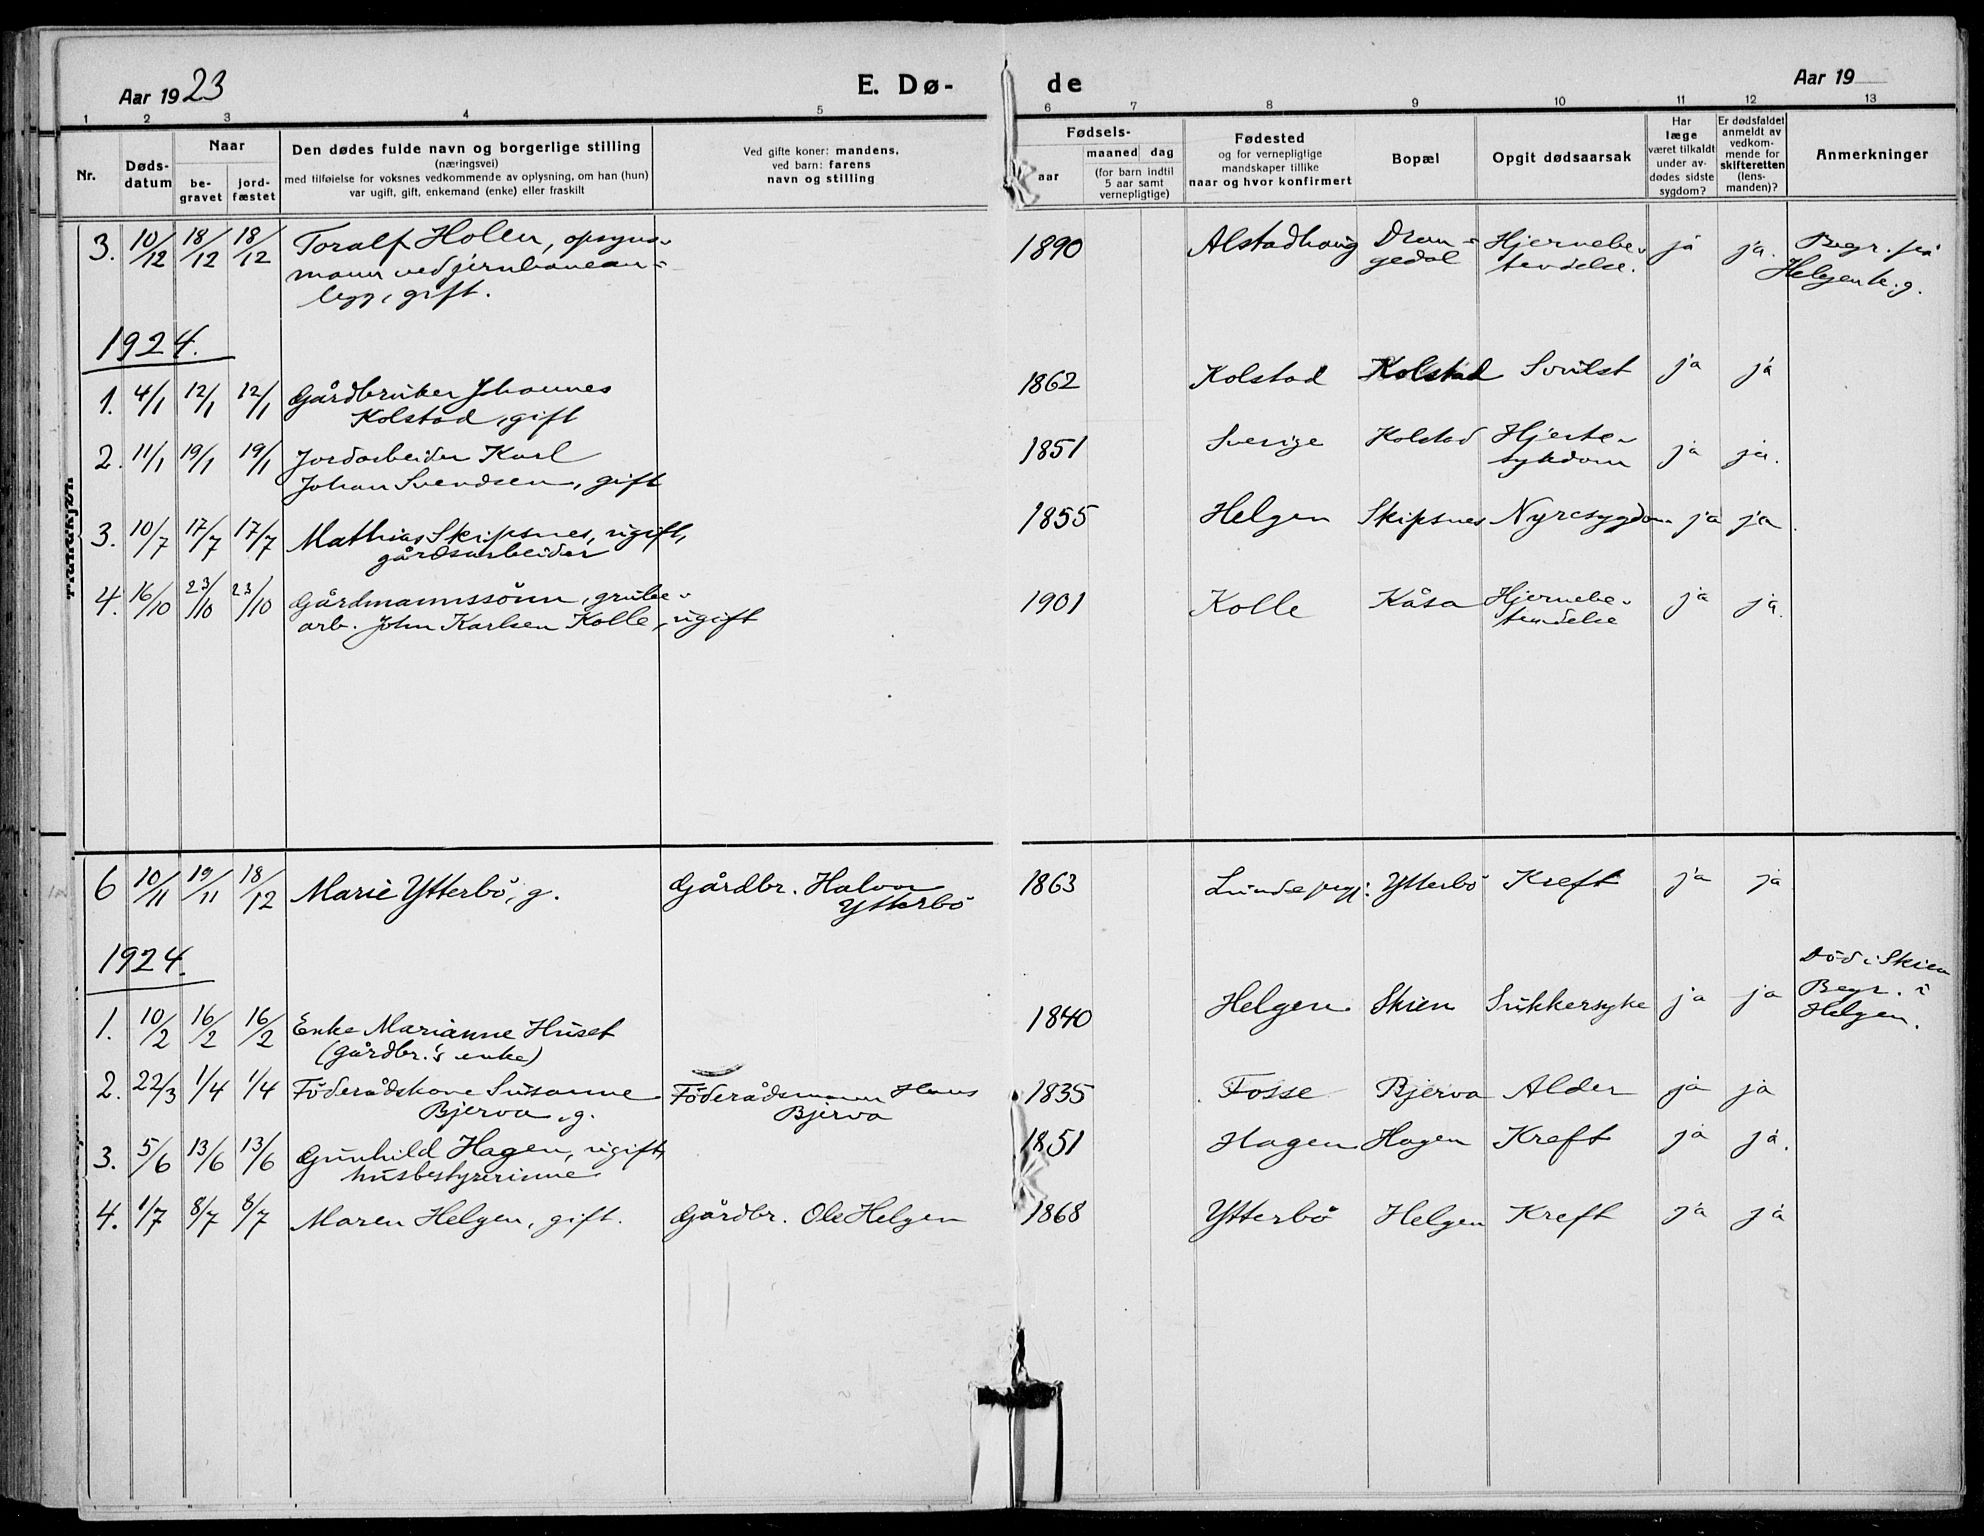 Aar 1923
E. Dø-
de
Aar 19
1 2 3 4 5 6 7 8 9 10 11 12 13
Nr.
Døds-
datum
Naar
be-
gravet
jord-
fæstet
Den dødes fulde navn og borgerlige stilling
(næringsvei)
med tilføielse for voksnes vedkommende av oplysning, om han (hun)
var ugift, gift, enkemand (enke) eller fraskilt
Ved gifte koner: mandens,
ved barn: farens
navn og stilling
Fødsels-
aar
maaned dag
(for barn indtil
5 aar samt
vernepligtige)
Fødested
og for vernepligtige
mandskaper tillike
naar og hvor konfirmert
Bopæl
Opgit dødsaarsak
Har
læge
været tilkaldt
under av-
dødes sidste
sygdom?
Er dødsfaldet
anmeldt av
vedkom-
mende for
skifteretten
(lens-
manden)?
Anmerkninger
3. 10/12 18/12 18/12 Toralf Holen, opsyns- 1890 Alstadhaug Dran- Hjernebe- ja ja. Begr. på
mann ved jernbanean- gedal tendelse. Helgen k.g.
legg, gift.
1924.
1. 4/1 12/1 12/1 Gårdbruker Johannes 1862 Kolstad Kolstad Svulst ja ja
Kolstad, gift
2. 11/1 19/1 19/1 Jordarbeider Karl 1851 Sverige Kolstad Hjerte- ja ja.
Johan Svendsen, gift sykdom
3. 10/7 17/7 17/7 Mathias Skipsnes, ugift, 1855 Helgen Skipsnes Nyresygdom ja ja
gårdsarbeider
4. 16/10 23/10 23/10 Gårdmannssønn, grube- 1901 Kolle Kåsa Hjernebe- ja ja.
arb. John Karlsen Kolle, ugift tendelse
6 10/11 19/11 18/12 Marie Ytterbö, g. Gårdbr. Halvor 1863 Lunde prgj: Ytterbö Kreft ja ja
Ytterbö
1924.
1. 10/2 16/2 16/2 Enke Marianne Huset 1840 Helgen Skien Sukkersyke ja ja Död i Skien
(gårdbr.'s enke) Begr. i
Helgen.
2. 22/3 1/4 1/4 Föderådskone Susanne Föderådsmann Hans 1835 Fosse Bjerva Alder ja ja
Bjerva, g. Bjerva
3. 5/6 13/6 13/6 Gunhild Hagen, ugift, 1851 Hagen Hagen Kreft ja ja.
husbestyrerinne
4. 1/7 8/7 8/7 Maren Helgen, gift. Gårdbr. Ole Helgen 1868 Ytterbö Helgen Kreft ja ja